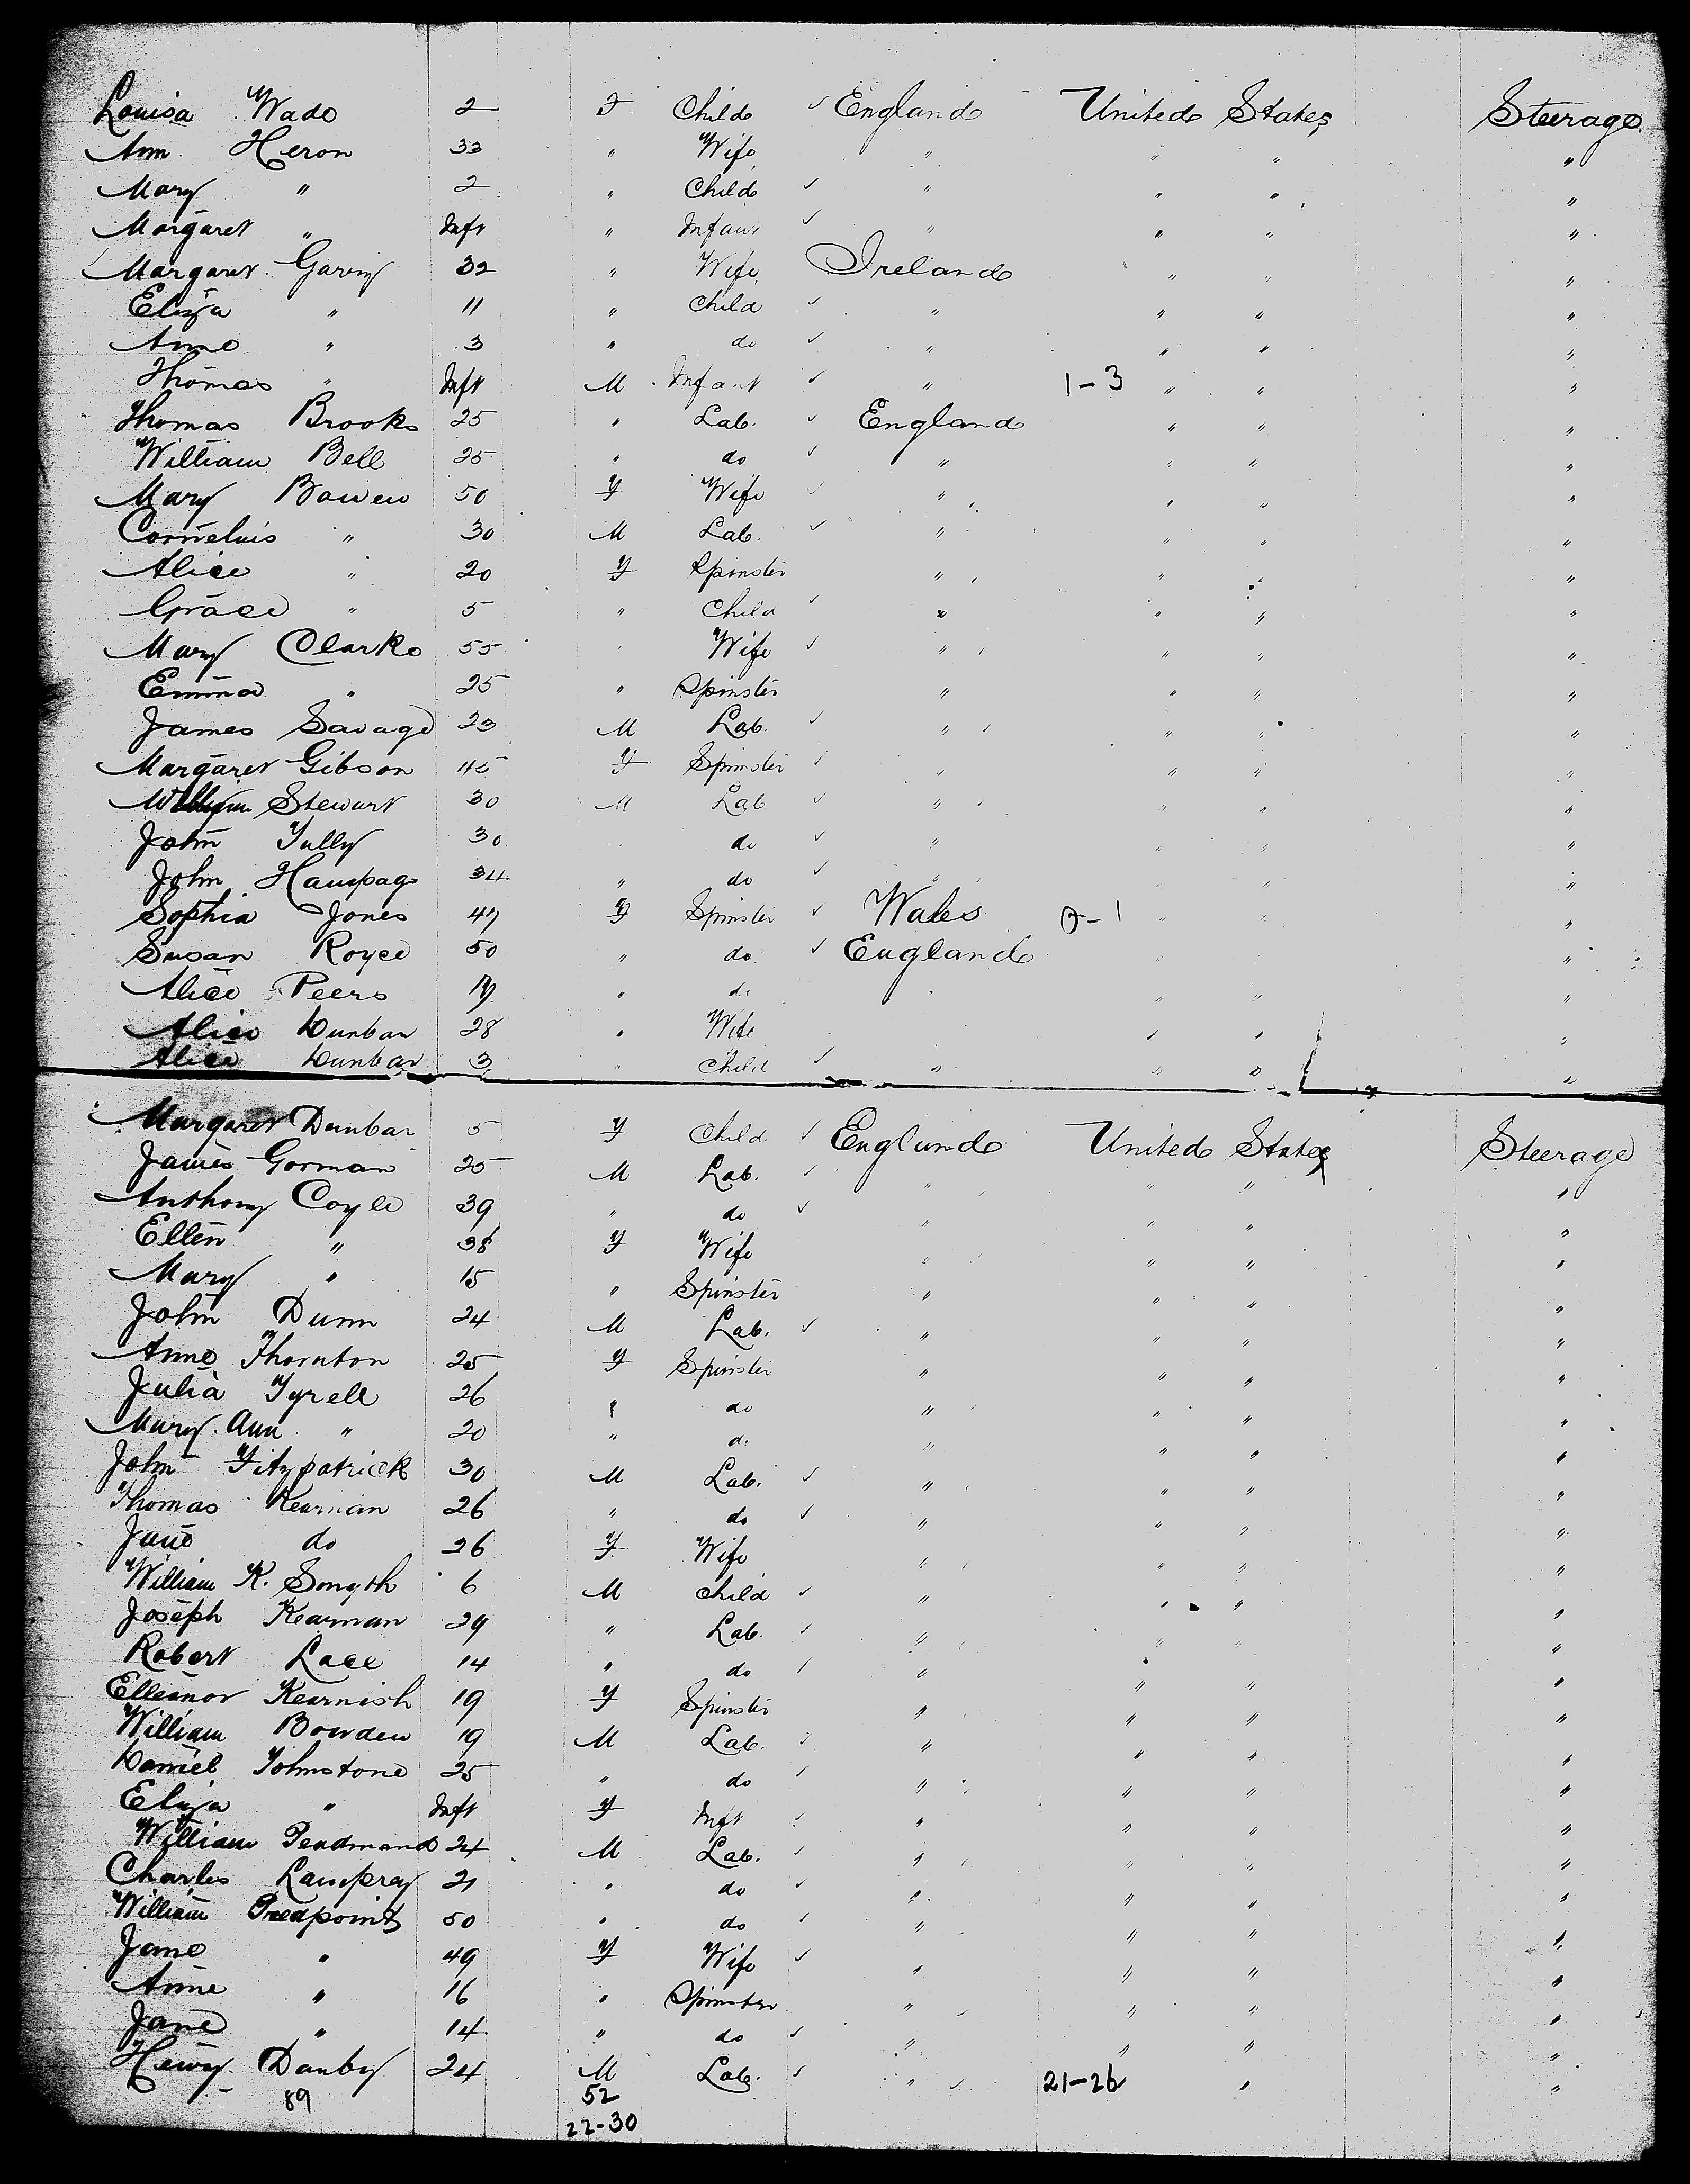 Louisa Wade 2 F Child ✓ England United States Steerage
Ann Heron 33 " Wife " " " "
Mary " 2 " Child ✓ " " " "
Margaret " Inft " Infant ✓ " " " "
Margaret 32 " Wife Ireland " " "
Eliza " 11 " Child ✓ " " " "
Anne " 3 " do ✓ " " " "
Thomas " Inft M Infant ✓ " 1-3 " " "
Thomas Brooks 25 " Lab. ✓ England " " "
William Bell 25 " do ✓ " " " "
Mary Bowen 50 F Wife ✓ " " " "
Cornelius " 30 M Lab. ✓ " " " "
Alice " 20 F Spinster " " " "
Grace " 5 " Child ✓ " " " "
Mary Clarke 55 Wife ✓ " " " "
Emma " 25 " Spinster " " " "
James Savage 23 M Lab. ✓ " " " "
Margaret Gibson 45 F Spinster ✓ " " " "
William Stewart 30 M Lab ✓ " " " "
John Tully 30 do ✓ " " " "
John 34 " do ✓ " " " "
Sophia Jones 47 F Spinster ✓ Wales " " "
Susan Royce 50 " do ✓ England "
Alice Peers 19 " do " " "
Alice Dunbar 28 " Wife " " "
Alice Dunbar 3 " Child ✓ " " " "
Margaret Dunbar 5 F Child ✓ England United States Steerage
James Gorman 25 M Lab. ✓ " " " "
Anthony Coyle 39 " do ✓ " " " "
Ellen " 38 F Wife " " " "
Mary " 15 " Spinster " " " "
John Dunn 24 M Lab. ✓ " " " "
Anne Thornton 25 F Spinster " " " "
Julia Tyrell 26 " do " " " "
Mary Ann " 20 " do " " " "
John Fitzpatrick 30 M Lab. ✓ " " " "
Thomas Kearnan 26 " do ✓ " " " "
Jane do 26 F Wife " " " "
William K. 6 M Child ✓ " " " "
Joseph Kearman 29 " Lab. ✓ " " " "
Robert Lace 14 " do ✓ " " " "
Elleanor Kearnish 19 F Spinster " " " "
William Bowden 19 M Lab. ✓ " " " "
Daniel Johnstone 25 " do ✓ " " " "
Eliza " Inft F Inft ✓ " " " "
William 24 M Lab. ✓ " " " "
Charles Lampray 21 " do ✓ " " " "
William 50 " do ✓ " " " "
Jane " 49 F Wife ✓ " " " "
Anne " 16 " Spinster " " " "
Jane " 14 " do ✓ " " " "
Henry Danby 24 M Lab. ✓ " 21-26 " "
89 52
22-30